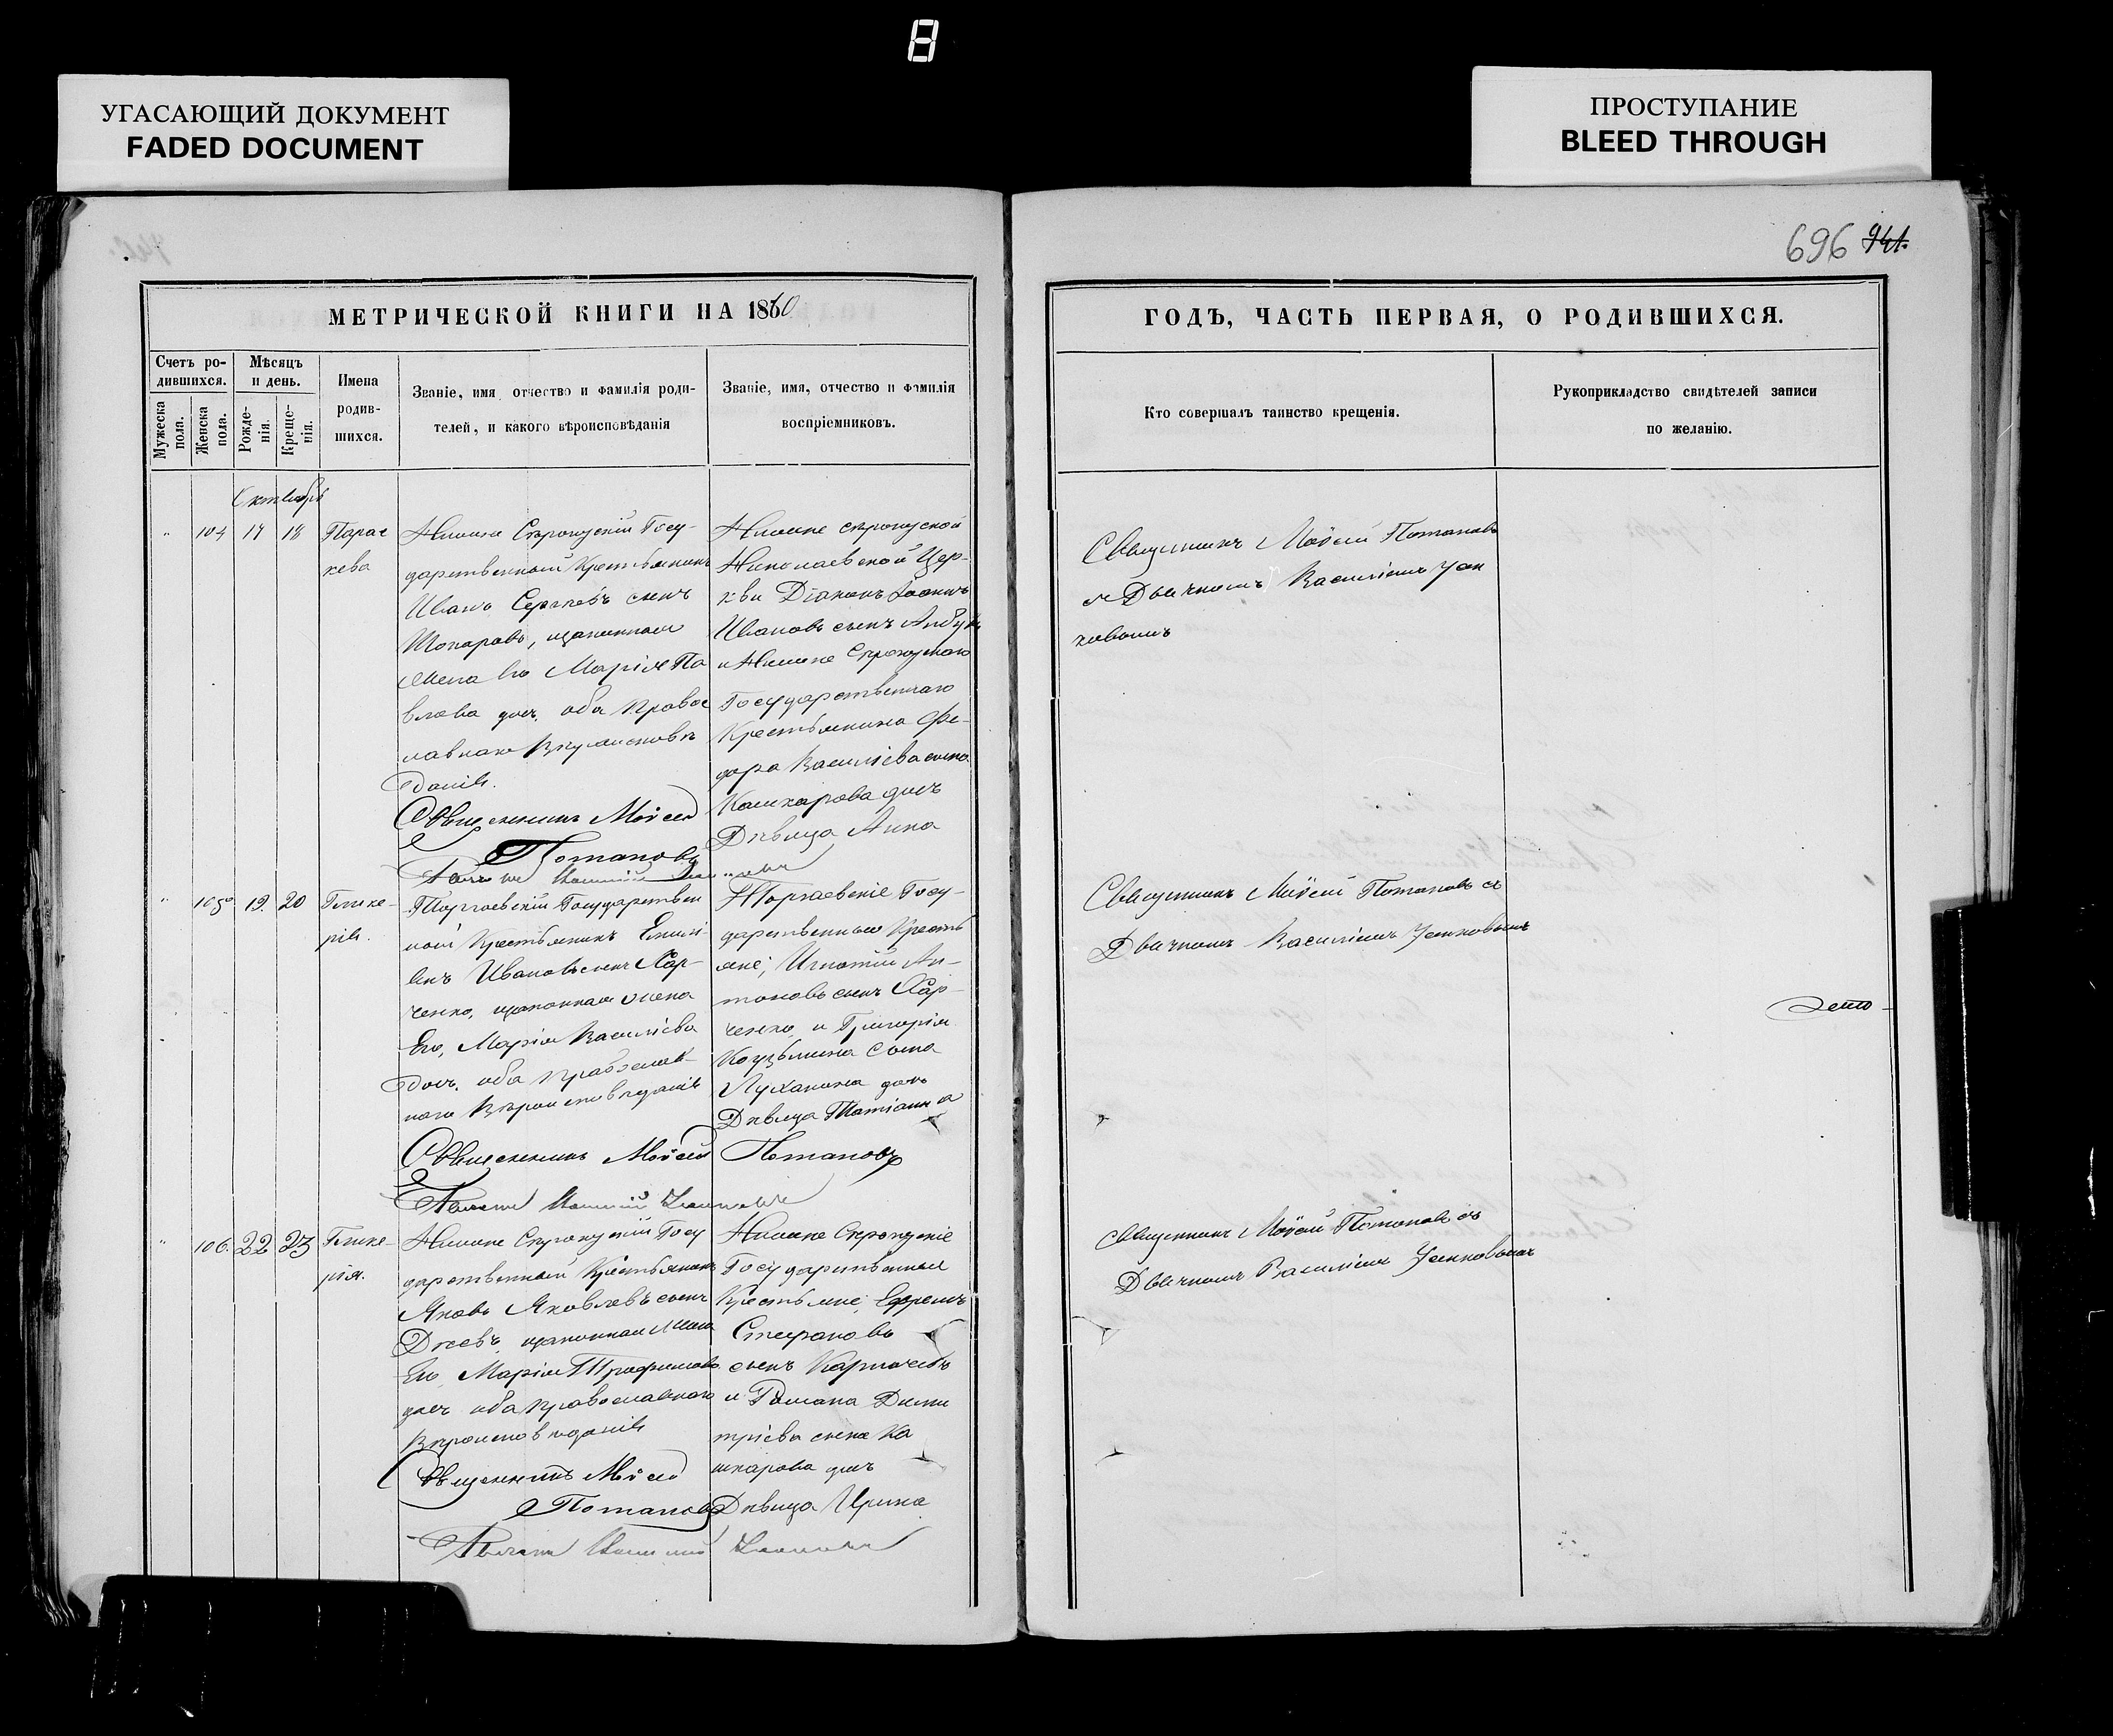 8
УГАСАЮЩИЙ ДОКУМЕНТ
FADED DOCUMENT
ПРОСТУПАНИЕ
BLEED THROUGH
696 941.
МЕТРИЧЕСКОЙ КНИГИ НА 1860
Счетъ ро-
дившихся.
Мѣсяцъ
и день.
Мужеска
пола.
Женска
пола.
Рожде-
нія.
Креще-
нія.
Имена
родив-
шихся.
Званіе, имя отчество и фамилія роди-
телей, и какого вѣроисповѣданія
Званіе, имя, отчество и фамилія
воспріемниковъ.
Октябрь
104 17 18 Параc
кева
Госу-
дарственный Крестьянинъ
Иванъ Сергѣевъ сынъ
законная
жена его Марія Па
влова доч. оба Правос
лавнаго Вѣроисповѣ
данія.
Священникъ Мойсей
Потаповъ
Николаевской Цер-
кви Діаконъ Іоаннъ
Ивановъ сынъ
Государственнаго
Крестьянина Фе-
дора Василіева сына
Кашкарова дочь
Дѣвица Анна
105 19. 20 Глике-
рія.
Государствен
ный Крестьянинъ Емилі-
анъ Ивановъ сынъ Хар-
ченко, законная жена
Его, Марія Василіева
доч. оба православ-
наго Вѣроисповѣданія
Госу-
дарственные Кресть
яне; Игнатій Ан-
тоновъ сынъ Хар-
ченко и Григорія
Козьмина сына
Луханина дочь
Дѣвица Татіанна
Священникъ Мойсей Потаповъ
106. 22 23 Глике-
рія.
Госу
дарственный Крестьянинъ
Яковъ Яковлевъ сынъ
законная жена
Его Марія Трофимова
доч оба православнаго
Вѣроисповѣданія
Священникъ Мойсей
Потаповъ
Государственные
Крестьяне, Ефремъ
Стефановъ
сынъ
и Романа Дими
тріева сына Ка
шкарова дочь
Дѣвица Ирина
ГОДЪ, ЧАСТЬ ПЕРВАЯ, О РОДИВШИХСЯ.
Кто совершалъ таинство крещенія.
Рукоприкладство свидѣтелей записи
по желанію.
Священникъ Мойсей Потаповъ
съ Дьячкомъ Василіемъ Усен
ковымъ
Священникъ Мойсей Потаповъ съ
Дьячкомъ Василіемъ Усенковымъ
Священникъ Мойсей Потаповъ съ
Дьячкомъ Василіемъ Усенковымъ